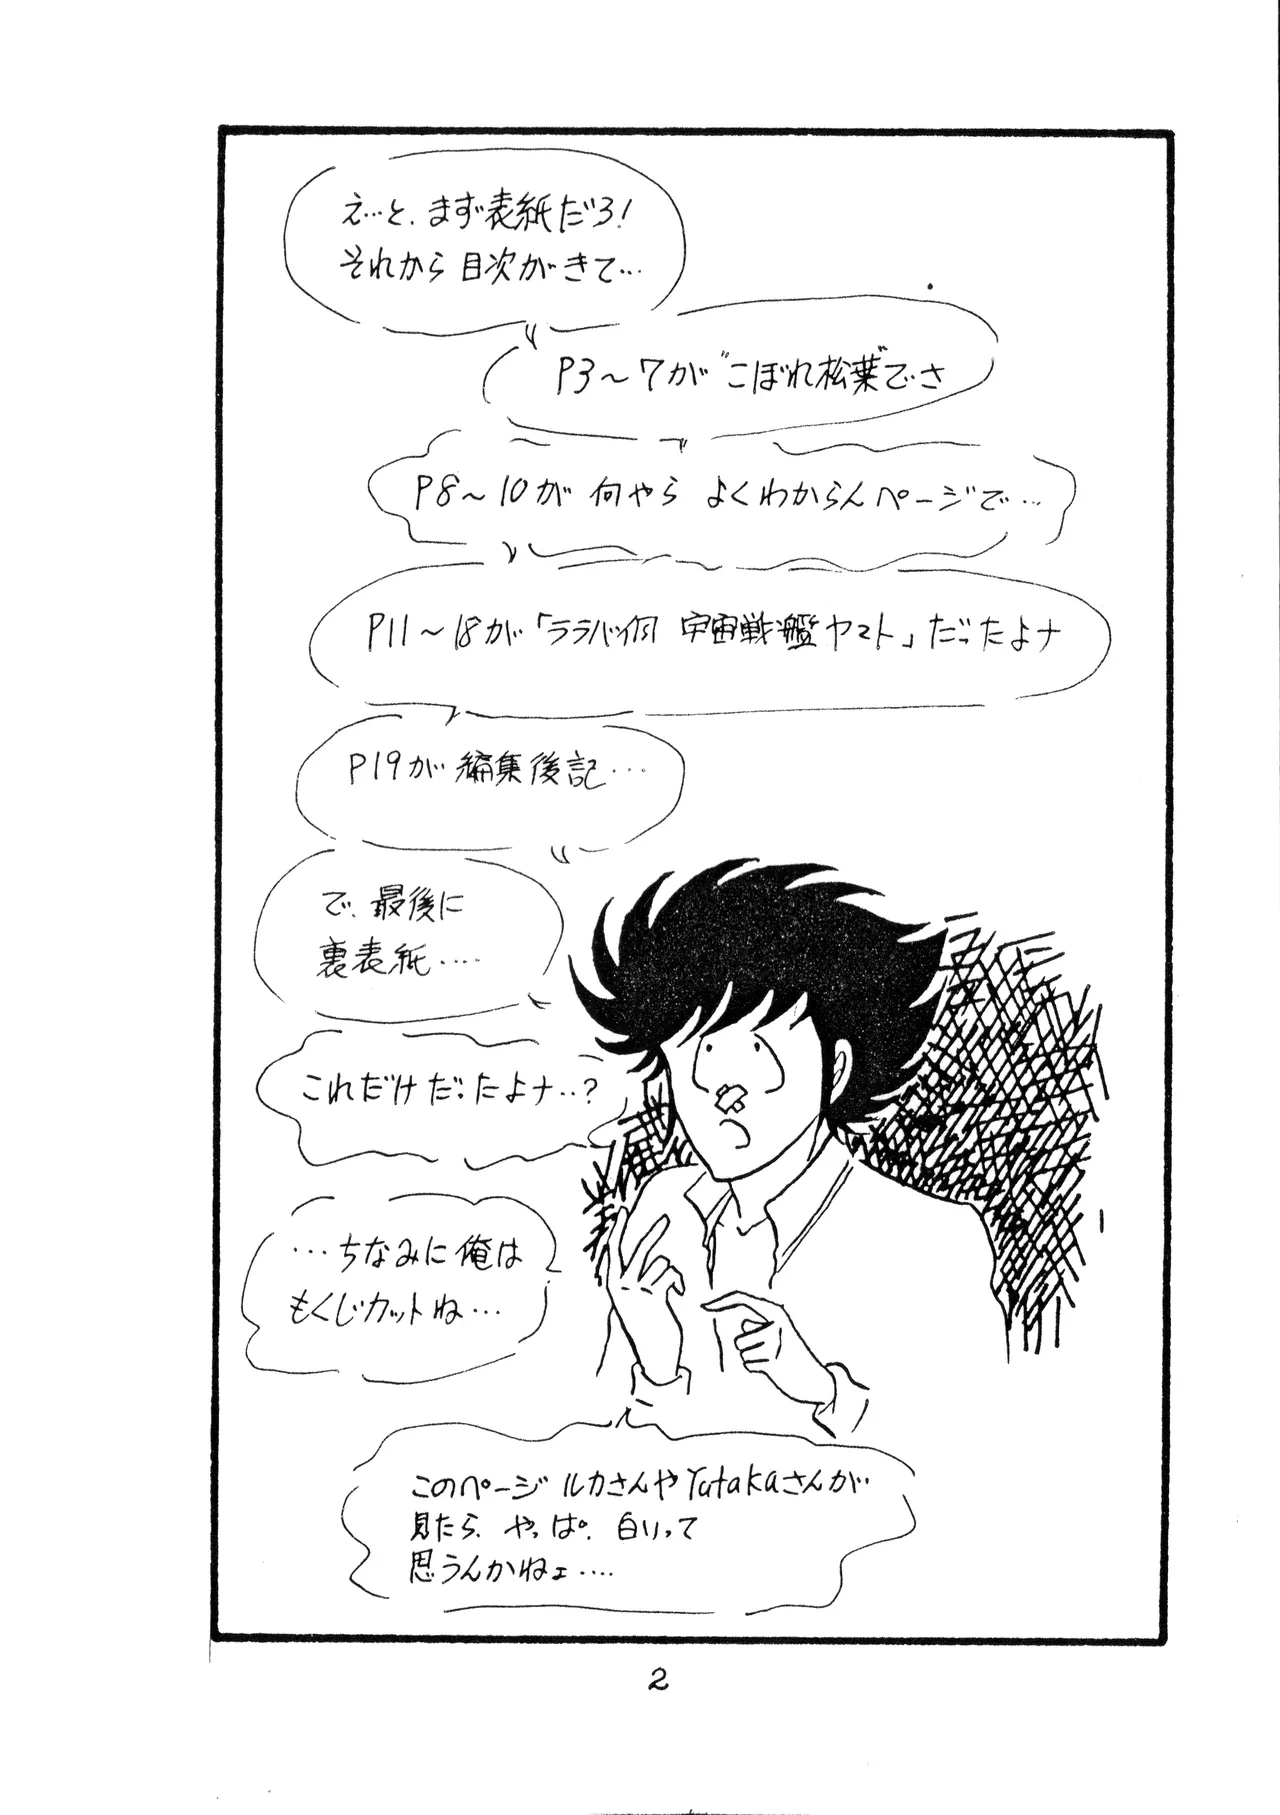 え…と、まず表紙だろ!
それから目次がきて…
P3～7が"こぼれ松葉"でさ
P8～10が 何やら よくわからんページで…
P11～18が「ララバイ何 宇宙戦艦ヤマト」だったよナ
P19が編集後記…
で、最後に
裏表紙‥‥
これだけだったよナ‥?
…ちなみに俺は
もくじカットね…
このページ ルカさんやYutakaさんが
見たら、やっぱ。白いって
思うんかねェ‥‥
2